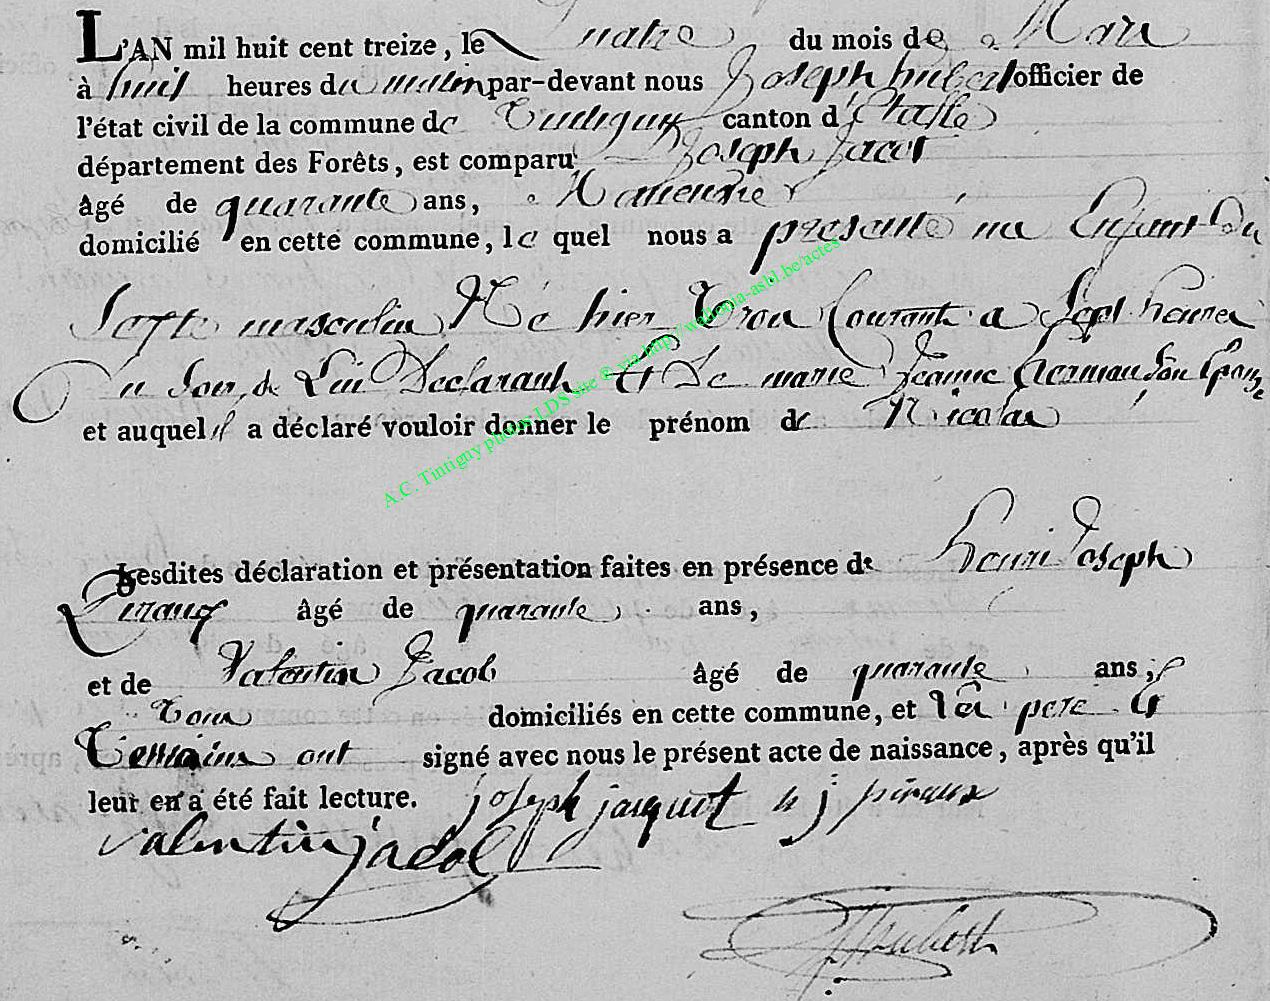 L'AN mil huit cent treize, le quatre du mois de Mars
à huit heures du matin par-devant nous Joseph hubert officier de
l'état civil de la commune de Tintigny canton d'Etalle
département des Forêts, est comparu Joseph Jacot
âgé de quarante ans, Manœuvre
domicilié en cette commune, le quel nous a presenté un Enfant Du
Sexe masculin Né hier trois Courant a Sept heures
Du Soir, de Lui Declarant Et De marie Jeanne herman Son Epouse
et auquel il a déclaré vouloir donner le prénom de Nicolas
A.C. Tintigny photos LDS site ® via http://wallonia-asbl.be/actes
Lesdites déclaration et présentation faites en présence de henri Joseph
Piraux âgé de quarante ans,
et de Valentin Jacob âgé de quarante ans,
Tous domiciliés en cette commune, et Les pere Et
Temoins ont signé avec nous le présent acte de naissance, après qu'il
leur en a été fait lecture. joseph jacquet h j piraux
valentin jacob
Hubert